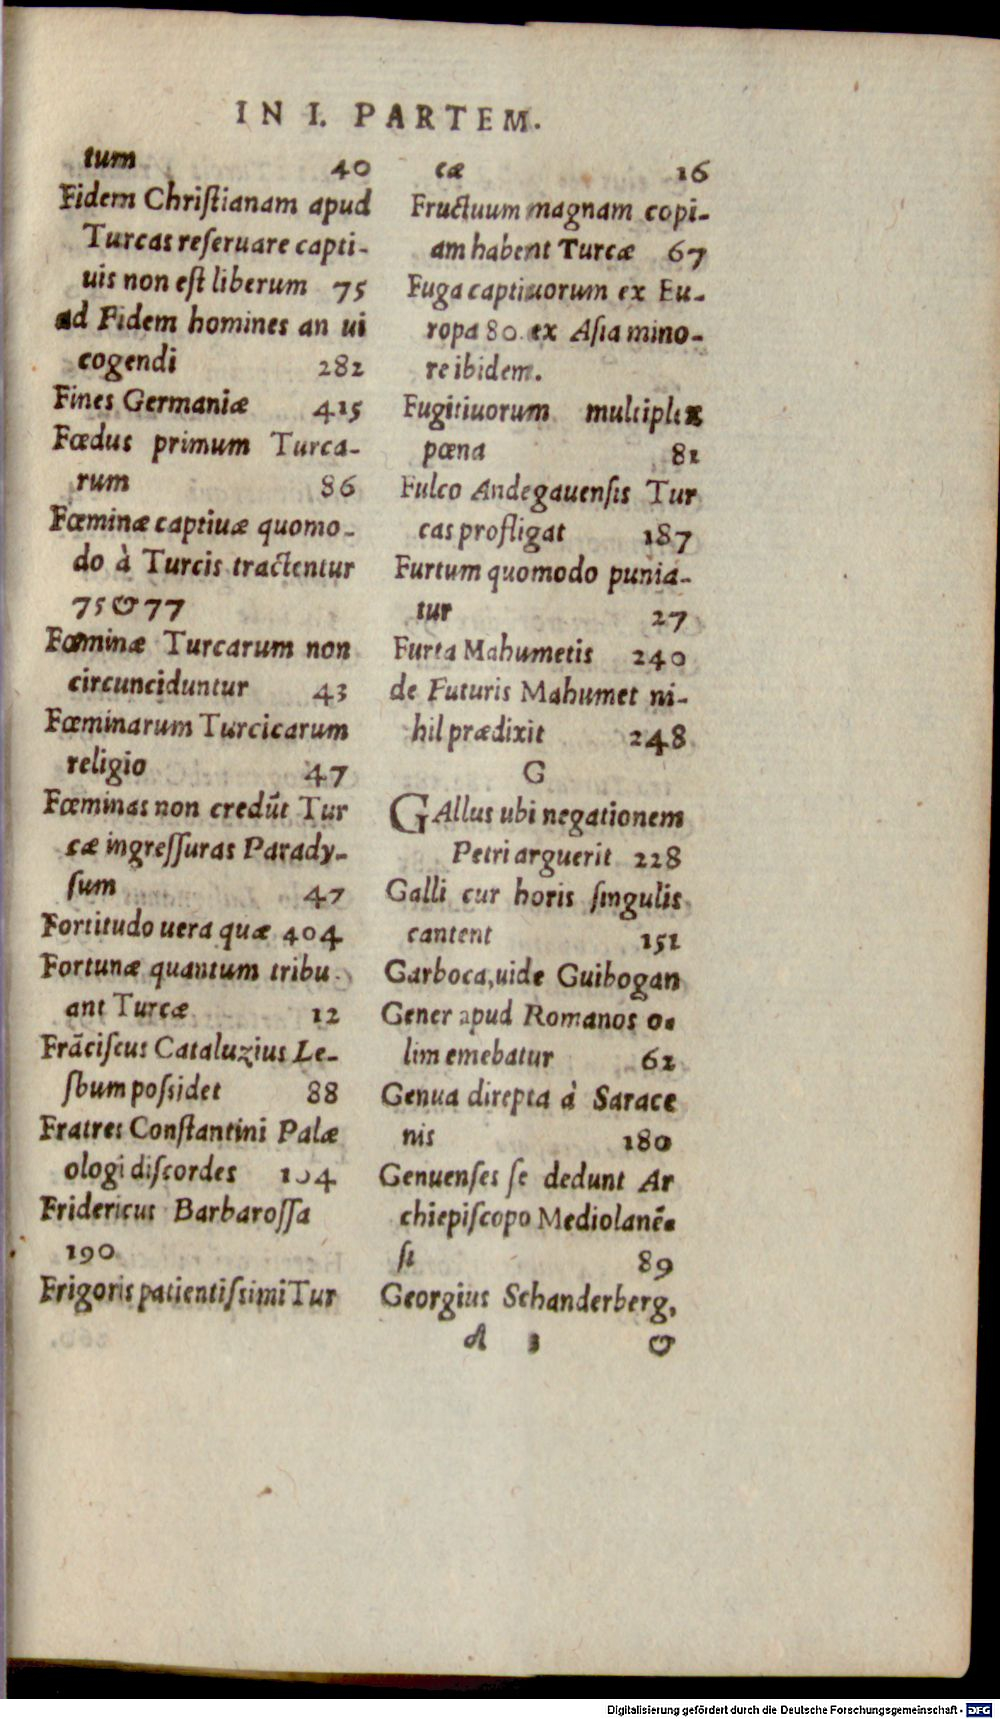 IN I. PARTEM.
tum 40
Fidem Chriſtianam apud
Turcas reſeruare capti-
uis non eſt liberum 75
ad Fidem homines an ui
cogendi 282
Fines Germaniæ 415
Fœdus primum Turca-
rum 86
Fœminæ captiuæ quomo-
do à Turcis tractentur
75 & 77
Fœminæ Turcarum non
circunciduntur 43
Fœminarum Turcicarum
religio 47
Fœminas non credūt Tur
cæ ingreſſuras Parady-
ſum 47
Fortitudo uera quæ 404
Fortunæ quantum tribu
ant Turcæ 12
Frāciſcus Cataluzius Le-
ſbum poſsidet 88
Fratres Conſtantini Palæ
ologi diſcordes 104
Fridericus Barbaroſſa
190
Frigoris patientiſsimi Tur
cæ 16
Fructuum magnam copi-
am habent Turcæ 67
Fuga captiuorum ex Eu-
ropa 80. ex Aſia mino-
re ibidem.
Fugitiuorum multiplex
pœna 81
Fulco Andegauenſis Tur
cas profligat 187
Furtum quomodo punia-
tur 27
Furta Mahumetis 240
de Futuris Mahumet ni-
hil prædixit 248
G
GAllus ubi negationem
Petri arguerit 228
Galli cur horis ſingulis
cantent 151
Garboca, uide Guibogan
Gener apud Romanos o-
lim emebatur 62
Genua direpta à Sarace
nis 180
Genuenſes ſe dedunt Ar
chiepiſcopo Mediolanē-
ſi 89
Georgius Schanderberg,
A 3 &
Digitalisierung gefördert durch die Deutsche Forschungsgemeinschaft - DFG